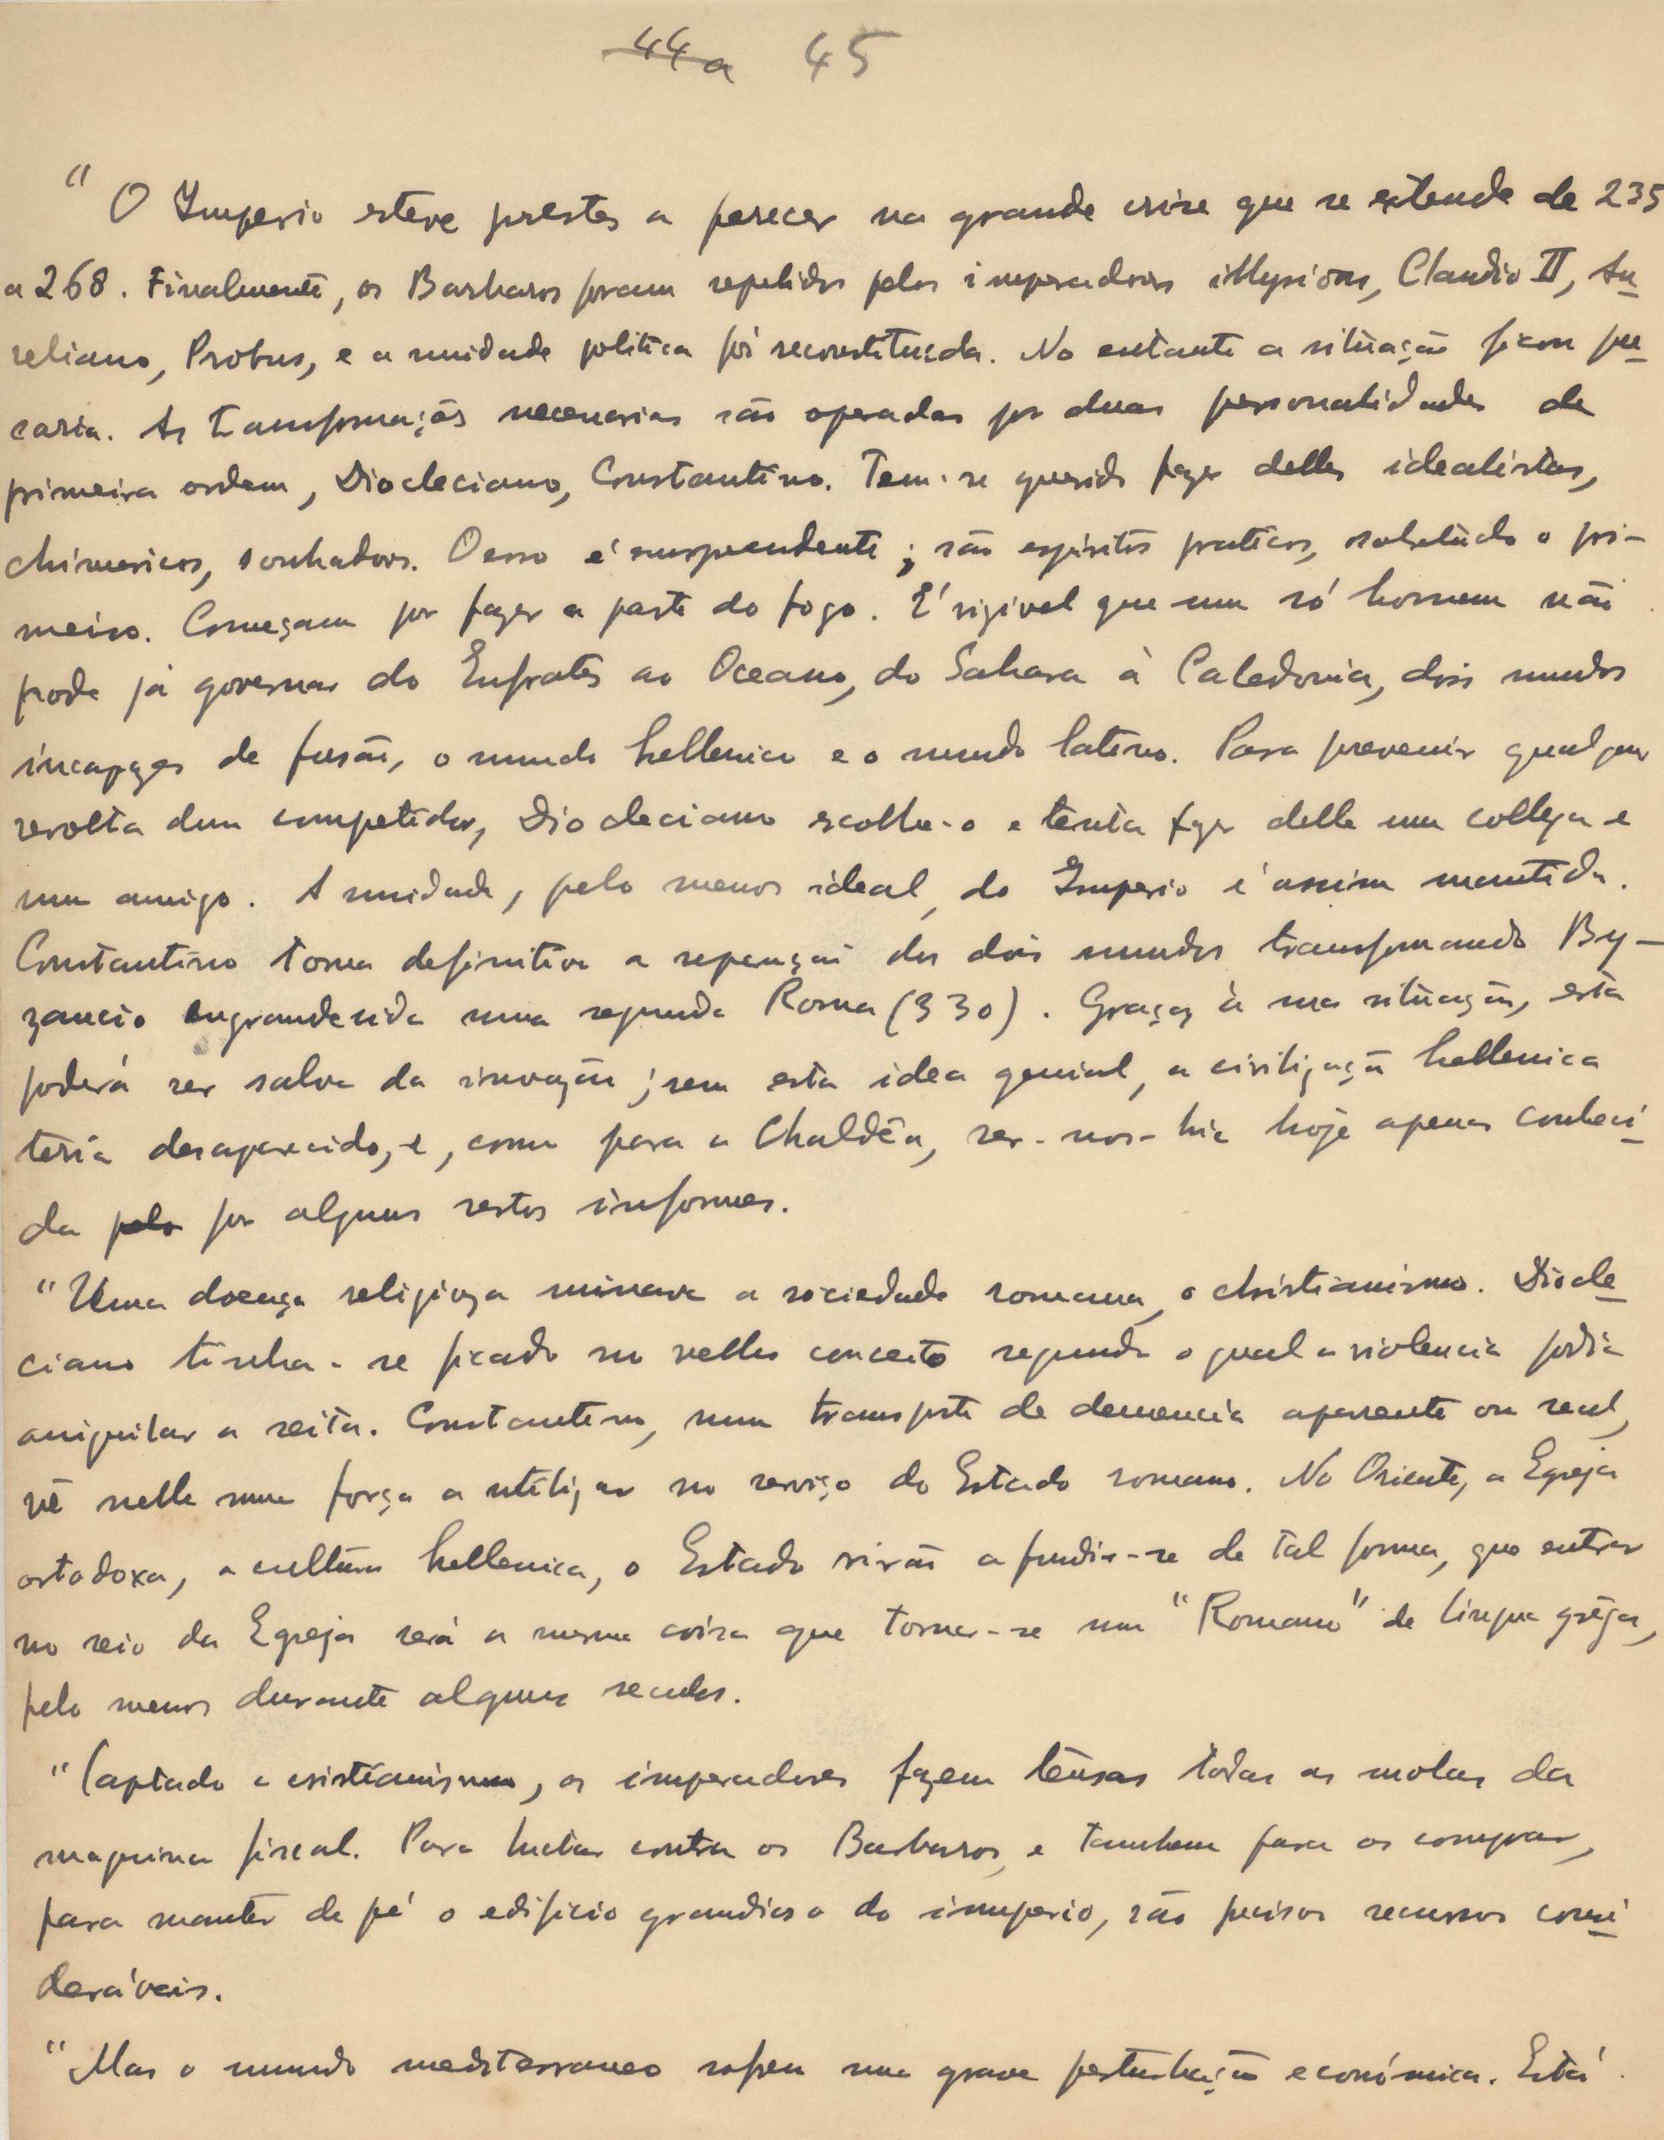 44a 45
" O Imperio esteve prestes a perecer na grande crise que se estende de 235
a 268. Finalmente, os Barbaros foram repelidos pelos imperadores illyrios, Claudio II, Au-
reliano, Probus, e a unidade politica foi reconstituida. No entanto a situação ficou pre-
caria. As transformações necessarias são operadas por duas personalidades de
primeira ordem, Diocleciano, Constantino. Tem-se querido fazer delles idealistas,
chimericos, sonhadores. O erro é surpreendente; são espiritos praticos, sobretudo o pri-
meiro. Começam por fazer a parte do fogo. É visivel que um só homem não
pode já governar do Eufrates ao Oceano, do Sahara à Caledonia, dois mundos
incapazes de fusão, o mundo hellenico e o mundo latino. Para prevenir qualquer
revolta dum competidor, Diocleciano escolhe-o e tenta fazer delle um collega e
um amigo. A unidade, pelo menos ideal, do Imperio é assim mantida.
Constantino torna definitiva a separação dos dois mundos transformando By-
zancio engrandecida numa segunda Roma (330). Graças à sua situação, esta
poderá ser salva da invasão; sem esta idea genial, a civilização hellenica
teria desaparecido, e, como para a Chaldêa, ser-nos-hia hoje apenas conheci-
da pelo por alguns restos informes.
"Uma doença religiosa minava a sociedade romana, o christianismo. Diocle-
ciano tinha-se ficado no velho conceito segundo o qual a violencia podia
aniquilar a seita. Constantino, num transporte de demencia aparente ou real,
vê nelle uma força a utilizar no serviço do Estado romano. No Oriente, a Egreja
ortodoxa, a cultura hellenica, o Estado virão a fundir-se de tal forma, que entrar
no seio da Egreja será a mesma coisa que tornar-se um "Romano" de lingua grêga,
pelo menos durante alguns seculos.
"Captado o cristianismo, os imperadores fazem tensas todas as molas da
maquina fiscal. Para luctar contra os Barbaros, e tambem para os comprar,
para manter de pé o edificio grandioso do imperio, são precisos recursos consi-
deráveis.
"Mas o mundo mediterraneo sofreu uma grave perturbação económica. Está